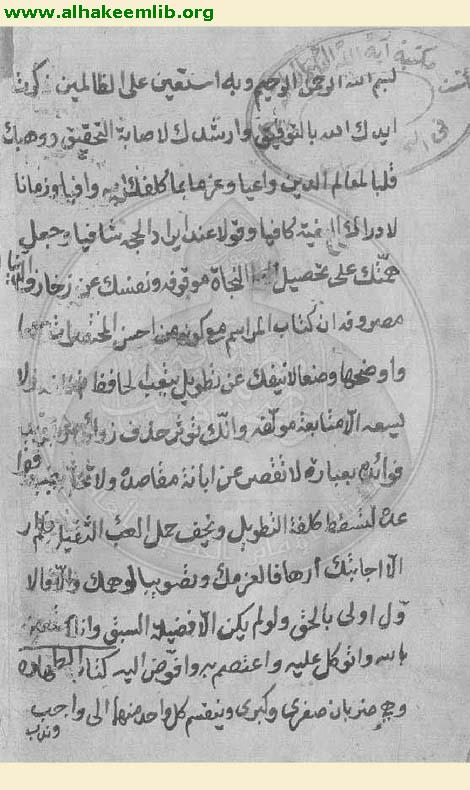 www.alhakeemlib.org
بسم الله الرحمن الرحيم وبه استعين على الظالمين ذكرت
ايدك الله بالتوفيق وارشدك لاصابة التحقيق ووهبك
قلبا لمعالم الدين واعيا وعزما بما كلفك به وافيا وزمانا
لادراك البغية كافيا وقولا عند ايراد الحجة شافيا وجعل
همتك على تحصيل النجاة موقوفة ونفسك عن زخارف الدنيا
مصروفة ان كتاب المراسم مع كونه من احسن المختصرات
واوضحها وضعا لا ينفك عن تطويل يتعب لحافظ ولا
يسعه الا متابعة مولفه وانك تؤثر حذف زوائده
فوائده بعبارة لا تقصر عن ابانة مقاصده ولا
عنه لتسقط كلفة التطويل وتخف حمل العبء الثقيل فلم ار
الا اجابتك ارهافا لعزمك وتصويبا لوهمك والا فالا
ول اولى بالحق ولو لم يكن الا فضيلة السبق وانا
بالله واتوكل عليه واعتصم به وافوض اليه كتاب الطهارة
وهي ضربان صغرى وكبرى وينقسم كل واحد منهما الى واجب
وندب